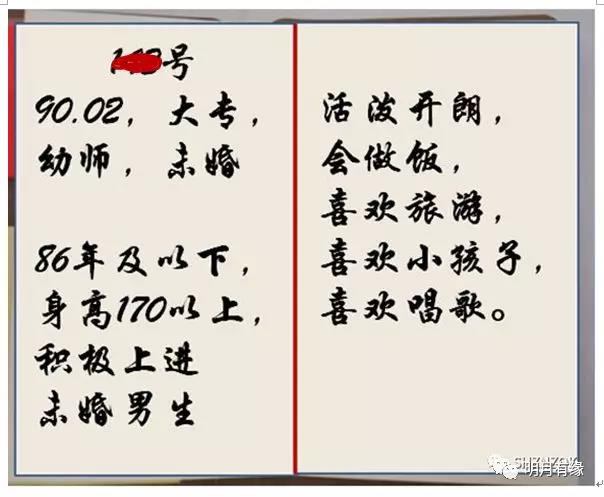 号
90.02，大专，
幼师，未婚
86年及以下，
身高170以上，
积极上进
未婚男生
活泼开朗，
会做饭，
喜欢旅游，
喜欢小孩子，
喜欢唱歌。
明月有缘